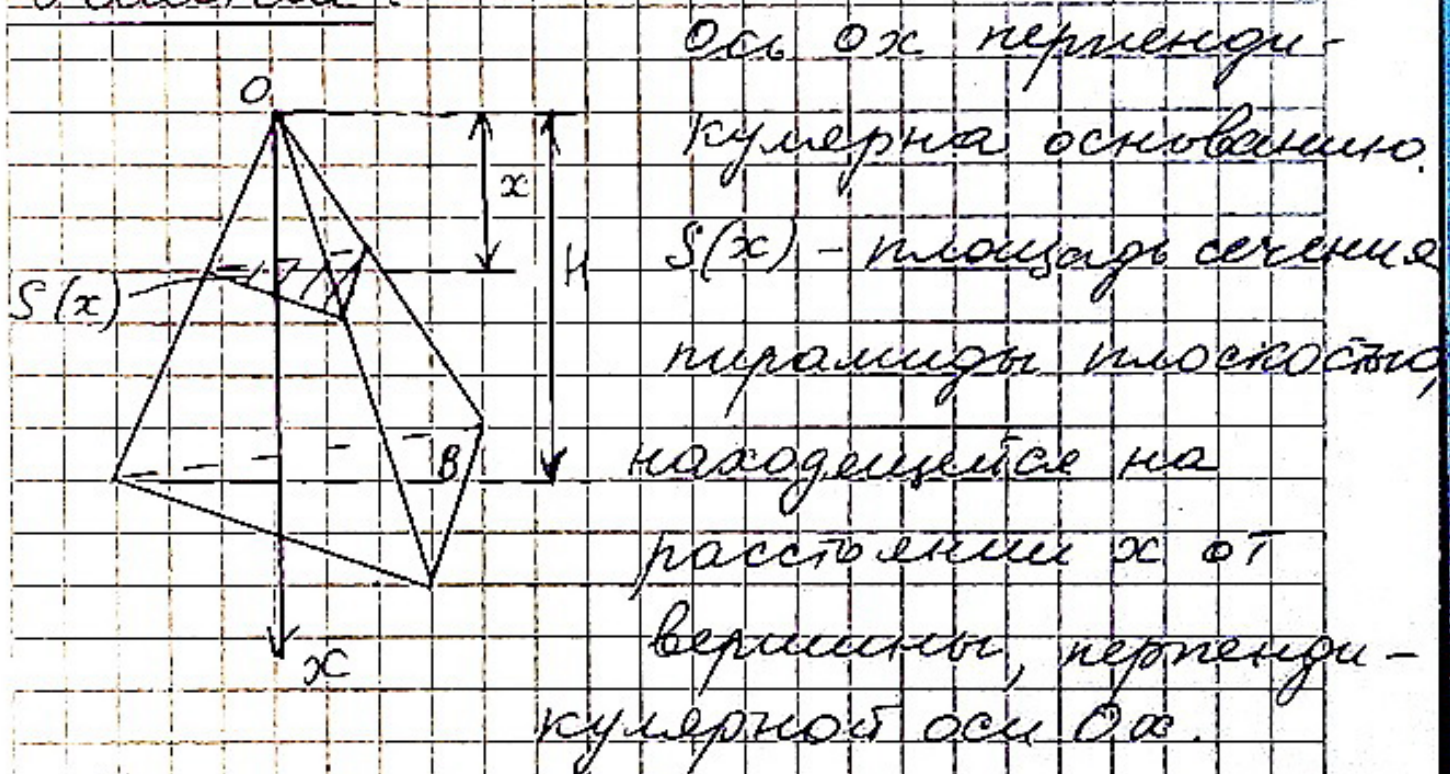 Ось Ох перпенди-
кулярна основанию.
S(x) - площадь сечения
пирамиды плоскостью,
находящейся на
расстоянии х от
вершины, перпенди-
кулярной оси Ох.
O
x
H
S(x)
B
x